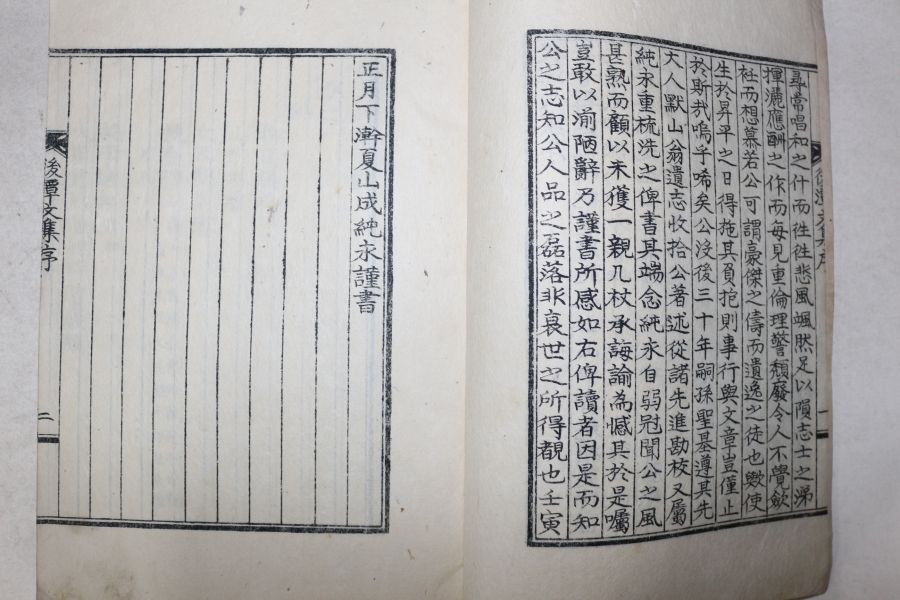 尋常唱和之什而徃徃悲風颯然足以隕志士之涕
揮灑應酬之作而每見重倫理警頹廢令人不覺歛
衽而想慕若公可謂豪傑之儔而遺逸之徒也歟使
生於昇平之日得拖其負抱則事行與文章豈僅止
於斯哉嗚乎唏矣公沒後三十年嗣孫聖基遵其先
大人默山翁遺志收拾公著述從諸先進勘校又屬
純永重梳洗之俾書其端念純永自弱冠聞公之風
甚熟而顧以未獲一親几杖承誨諭為憾其於是囑
豈敢以湔陋辭乃謹書所感如右俾讀者因是而知
公之志知公人品之磊落非衰世之所得覩也壬寅
正月下澣夏山成純永謹書
後潭文集序
二